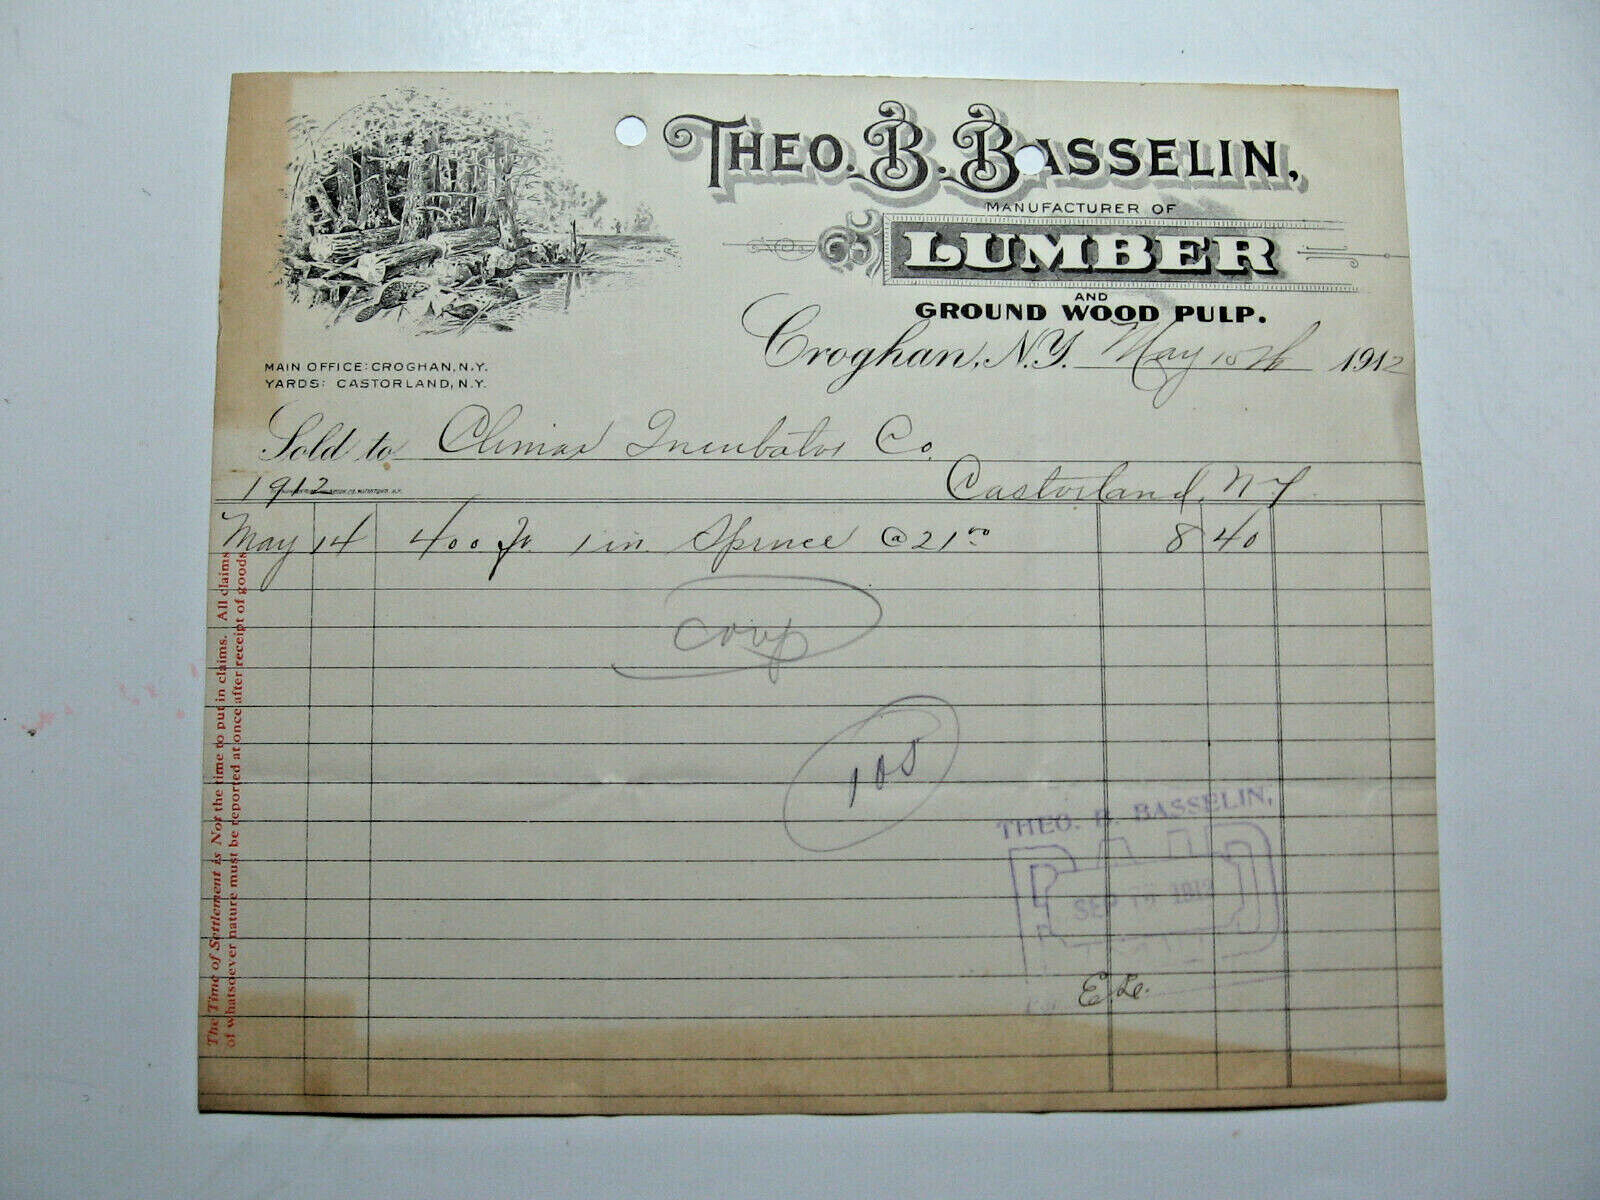 THEO. B. BASSELIN,
MANUFACTURER OF
LUMBER
AND
GROUND WOOD PULP.
MAIN OFFICE: CROGHAN, N.Y.
YARDS: CASTORLAND, N.Y.
Croghan, N.Y. May 15th 1912
Sold to Climax Incubator Co.
1912 Castorland, N Y
May 14 400 ft. 1 in. Spruce @ 21.00 8 40
The Time of Settlement is Not the time to put in claims. All claims
of whatsoever nature must be reported at once after receipt of goods
105
THEO. B. BASSELIN,
PAID
SEP 1912